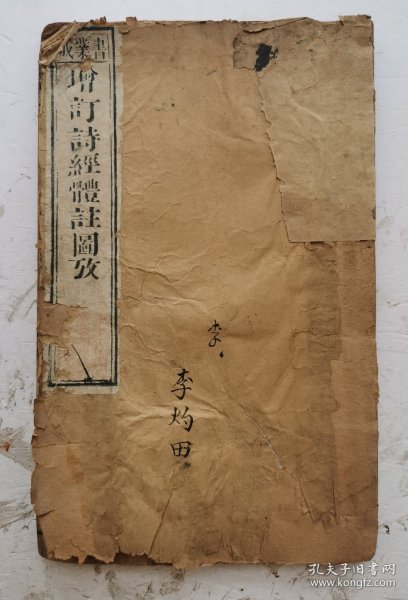 成業書
增訂詩經體註圖攷
李
李灼田
孔夫子旧书网
www.kongfz.com